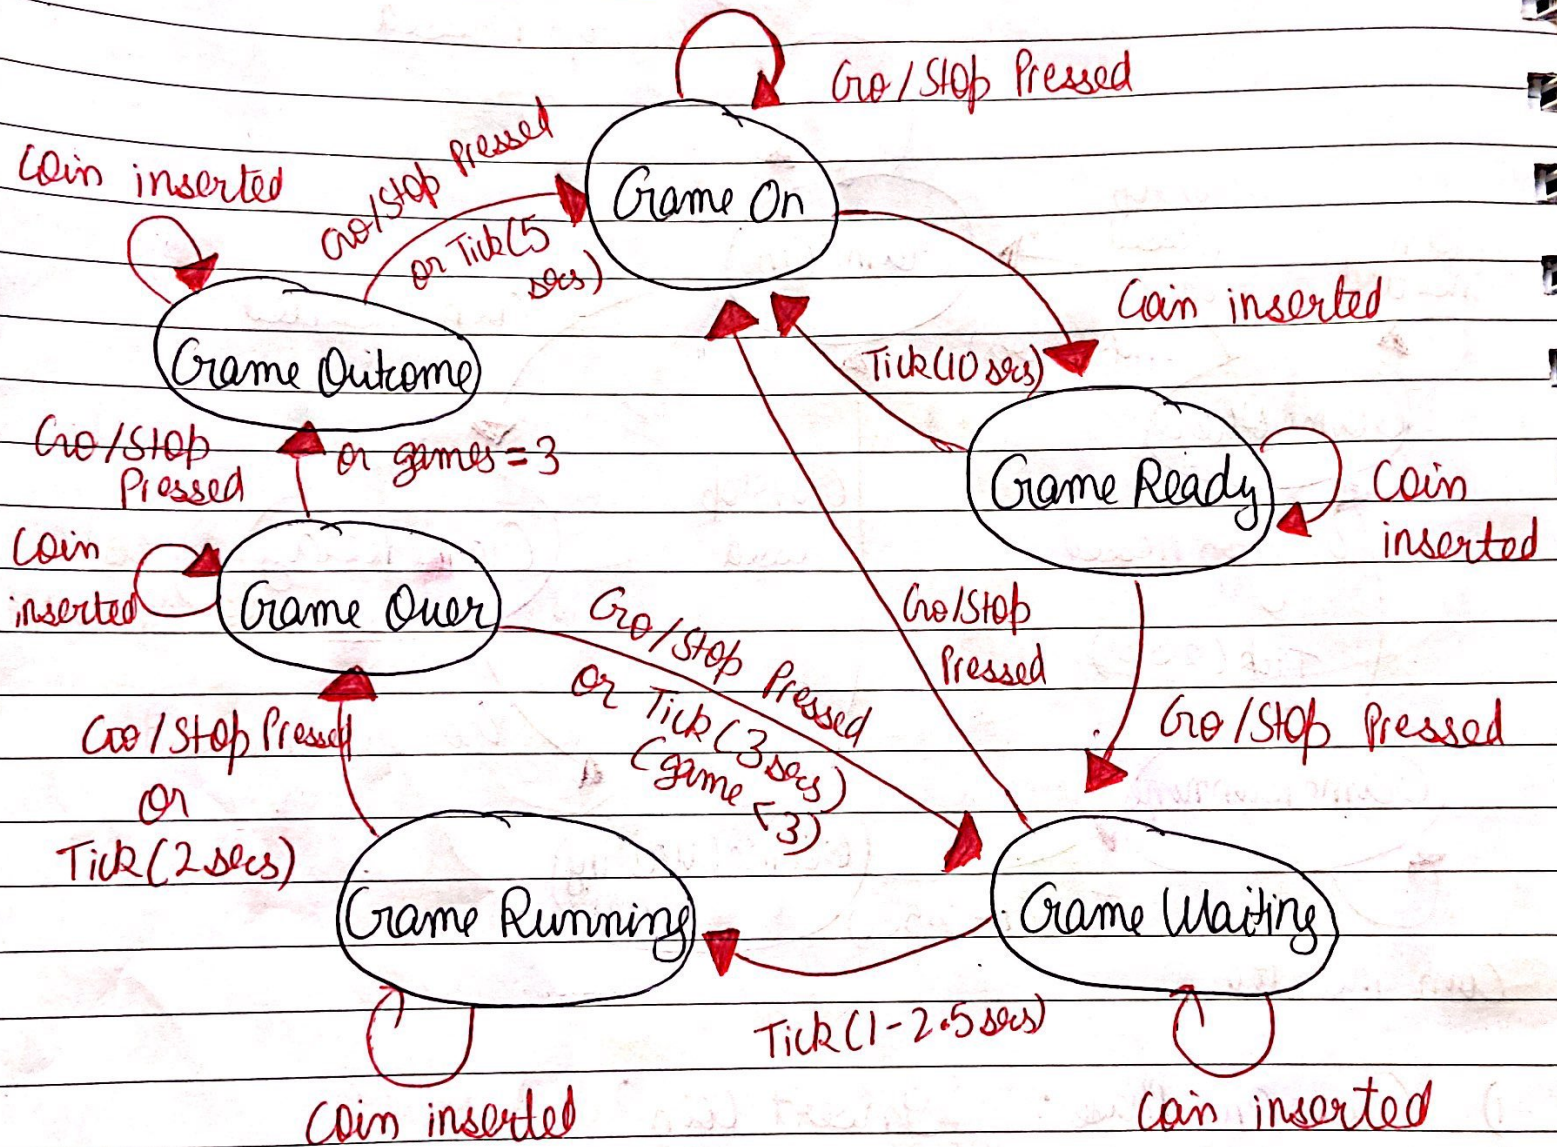 Go/Stop Pressed
Game On
Coin inserted
Go/Stop Pressed
or Tick(5
secs)
Game Outcome
Coin inserted
Tick(10 secs)
Game Ready
Coin
inserted
Go/Stop
Pressed
or games=3
Coin
inserted
Game Over
Go/Stop Pressed
or Tick(3secs)
(game
<3)
Go/Stop
Pressed
Go/Stop Pressed
Go/Stop Pressed
or
Tick(2secs)
Game Running
Game Waiting
Tick(1-2.5secs)
Coin inserted
Coin inserted